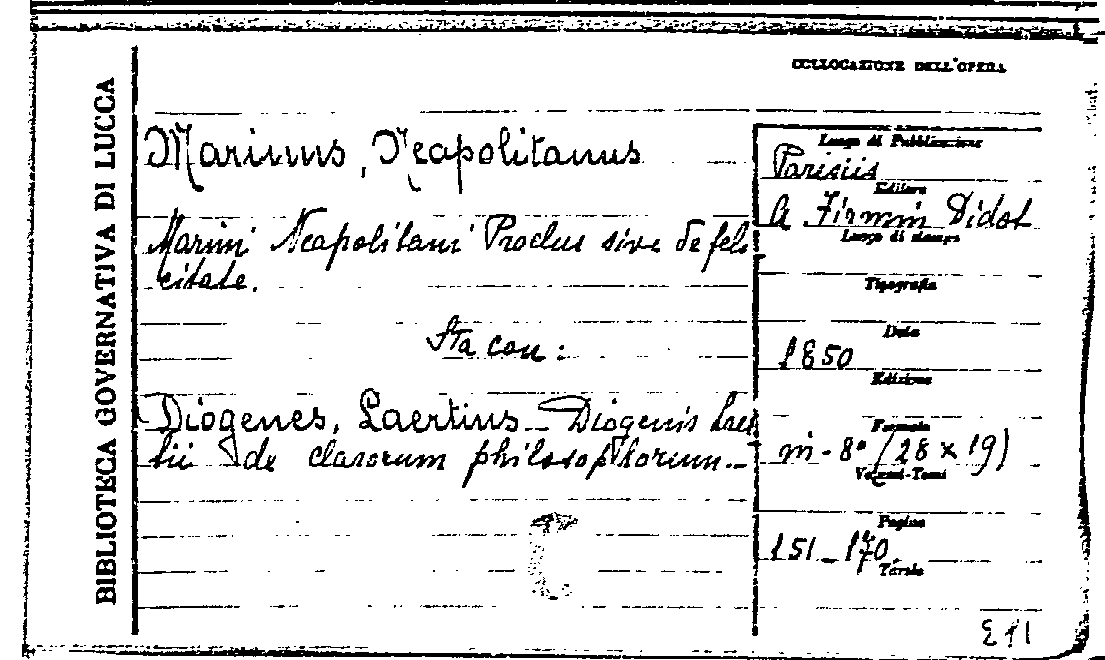 BIBLIOTECA GOVERNATIVA DI LUCCA
COLLOCAZIONE DELL'OPERA
Marinus, Neapolitanus
Marini Neapolitani Proclus sive de feli
citate.
Sta con:
Diogenes, Laertius - Diogenis Laer
tii de clarorum philosophorum -
Luogo di Pubblicazione
Parisiis
Editore
A Firmin Didot
Luogo di stampa
Tipografia
Data
1850
Edizione
Formato
in - 8° (28 x 19)
Volumi-Tomi
Pagine
151 - 170
Tavole